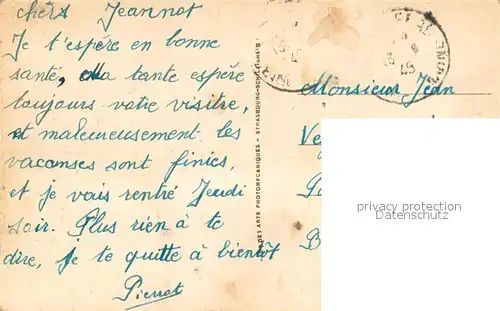 chers Jeannot
Je t'espère en bonne
santé, Ma tante espère
toujours votre visitre,
et maleureusement les
vacanses sont finies,
et je vais rentré Jeudi
soir. Plus rien à te
dire, je te quitte à bientôt
Pierrot
DES ARTS PHOTOMÉCANIQUES - STRASBOURG-SCHILTIGHEIM
Monsieur Jean
privacy protection
Datenschutz